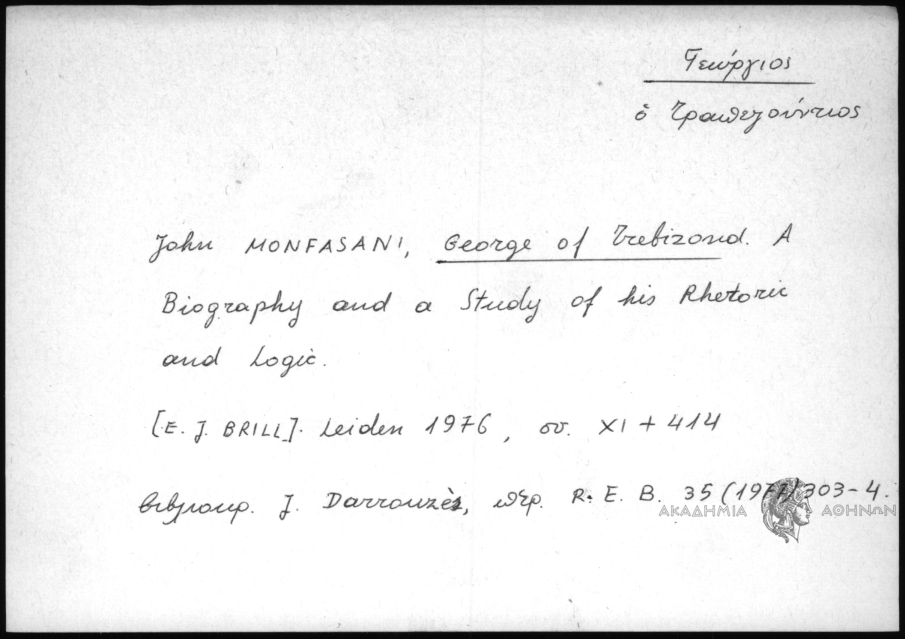 Γεώργιος
ὁ Τραπεζούντιος
John MONFASANI, George of Trebizond. A
Biography and a Study of his Rhetoric
and Logic.
[E. J. BRILL]. Leiden 1976, σσ. XI + 414
βιβλιοκρ. J. Darrouzès, περ. R. E. B. 35 (1977) 303-4.
ΑΚΑΔΗΜΙΑ ΑΘΗΝΩΝ